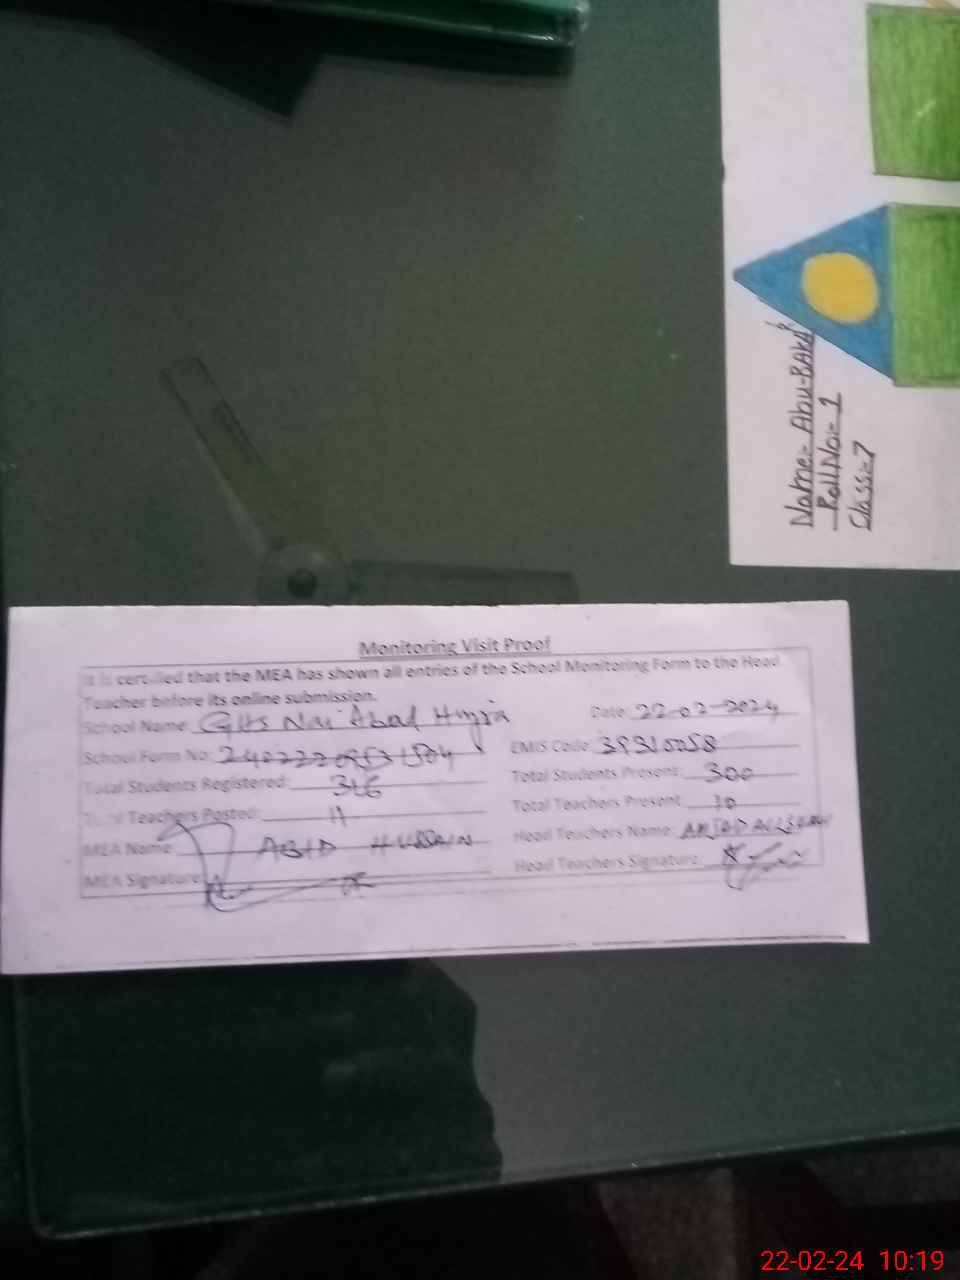 Name:- Abu-BAKAR
Roll No:- 1
Class:- 7
Monitoring Visit Proof
It is certified that the MEA has shown all entries of the School Monitoring Form to the Head
Teacher before its online submission.
School Name: GHS Abad Date: 22-02-2024
School Form No: EMIS Code: 39310058
Total Students Registered: 316 Total Students Present: 300
Total Teachers Posted: 11 Total Teachers Present: 10
MEA Name: ABID HUSSAIN Head Teachers Name: AMJAD ALI
MEA Signature: Head Teachers Signature:
22-02-24 10:19